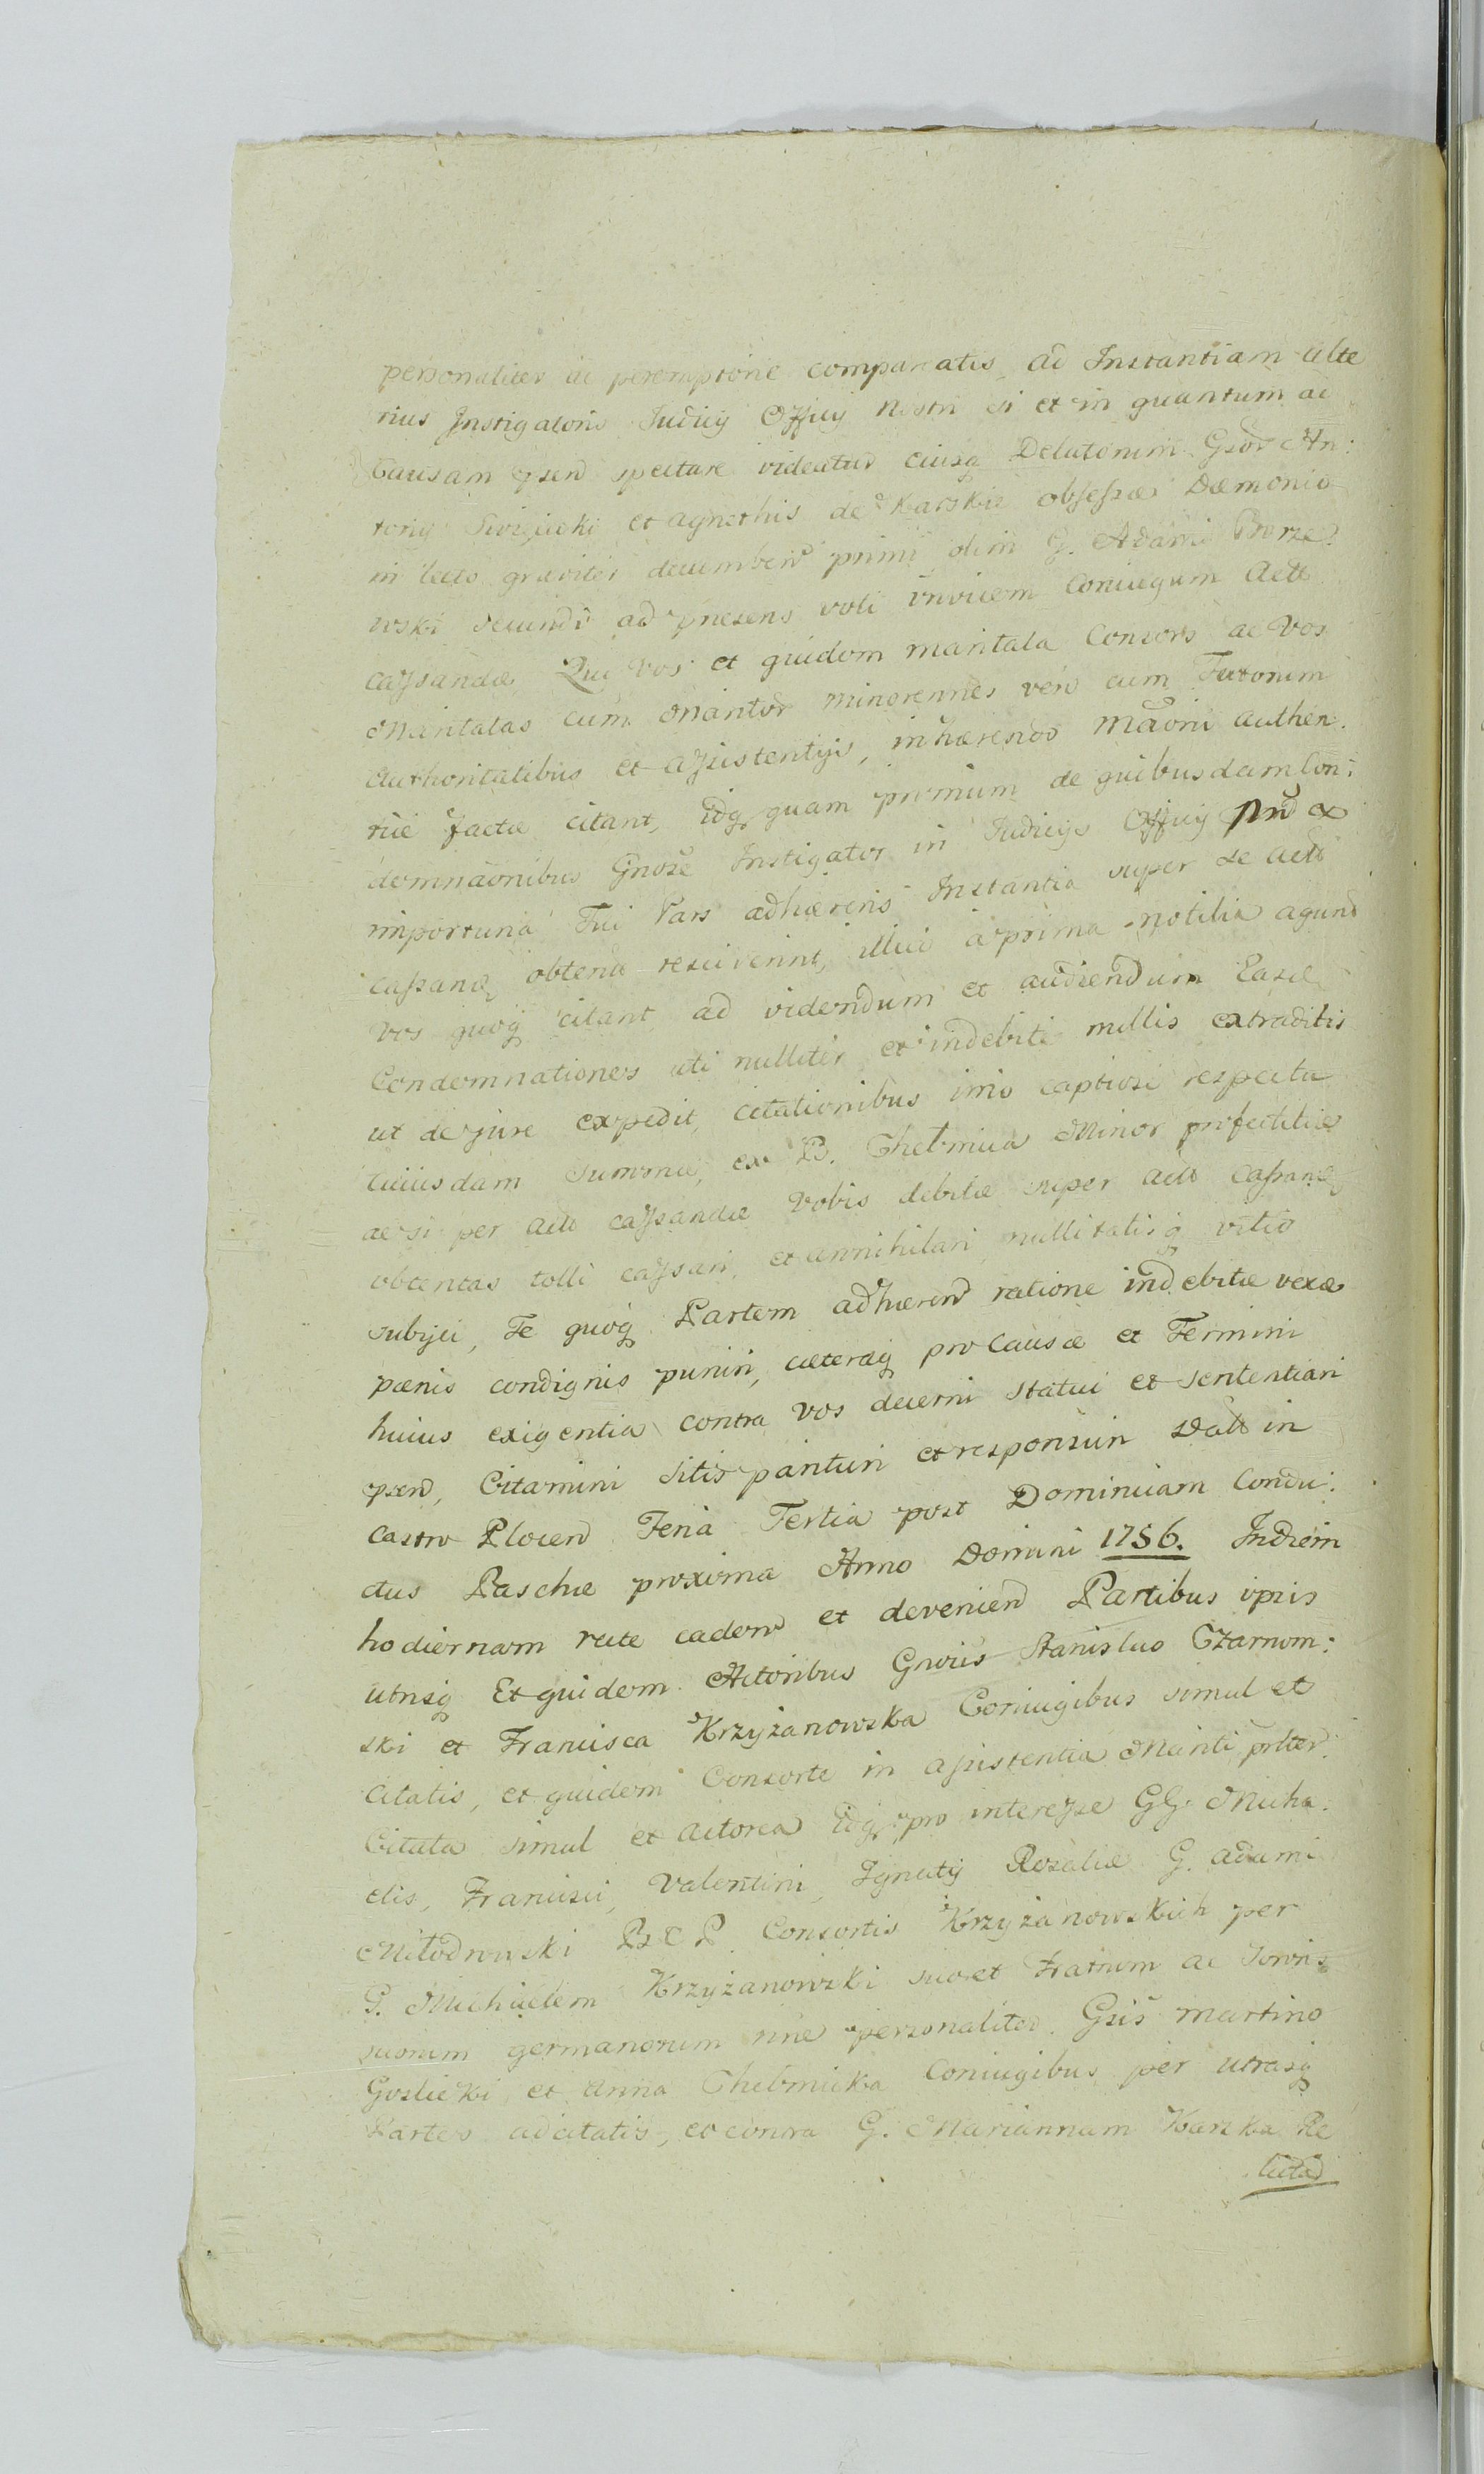 personaliter ac peremptorie comparatis ad Instantiam alte
rius Instigatoris Judicij Officij Nostri si et in quantum ad
Causam psend spectare videatur eiusq Delatorum Gsor An:
tonij et Agnethis de Karskie obsessæ Dæmonio
in lecto graviter decumbend primi olim G. Adami Borze:
wski secundi ad præsens voti invicem Coniugum Actt
cassandæ Qui vos et quidem maritata Consors ac vos
Maritatas cum Maritor minorennes vero cum Tutorum
Authoritatibus et assistentijs, inhærendo Mãoni authen:
ticæ factæ citant, idq quam primum de quibusdam Con:
demnãonibus Gnose Instigator in Judicijs Officij pnd ex
importuna Tui Pars adhærens Instantia super se actt
cassand obtent resciverint, illico a prima notitia agund
vos quoq citant ad videndum et audiendum Easd
Condemnationes uti nulliter et indebite nullis extraditis
ut de jure expedit, citationibus imo captiose respectu
cuiusdam summæ, ex B. Chełmica Minor profectitiæ
ac si per actt cassandæ Vobis debitæ super actt cassand
obtentas tolli cassari, et annihilari nullitatisq vitio
subijci, Te quoq Partem adhærend ratione indebitæ vexæ
pænis condignis puniri, cæteraq pro Causæ et Termini
huius exigentia contra vos decerni statui et sententiari
psend, Citamini sitis parituri et responsuri Datt in
Castro Plocen Feria Tertia post Dominicam Condu:
ctus Paschæ proxima Anno Domini 1756. In diem
hodiernam recte caden et devenien Partibus ipsis
utrisq Et quidem Actoribus Gnosis Stanislao Czarnom:
ski et Francisca Krzyżanowska Coniugibus simul et
Citatis, et quidem Consorte in assistentia Mariti prlter
Citata simul et Actorea idq pro interesse GG. Micha:
elis, Francisci, Valentini, Ignatij Rosaliæ G. Adami
Młodowski B C P Consortis Krzyżanowskich per
G. Michaelem Krzyżanowski suo et Fratrum ac Sororis
suorum germanorum nne personaliter. Gsis Martino
Goslicki et Anna Chełmicka Coniugibus per utrasq
Partes adcitatis, et contra G. Mariannam Karska Re
lictad